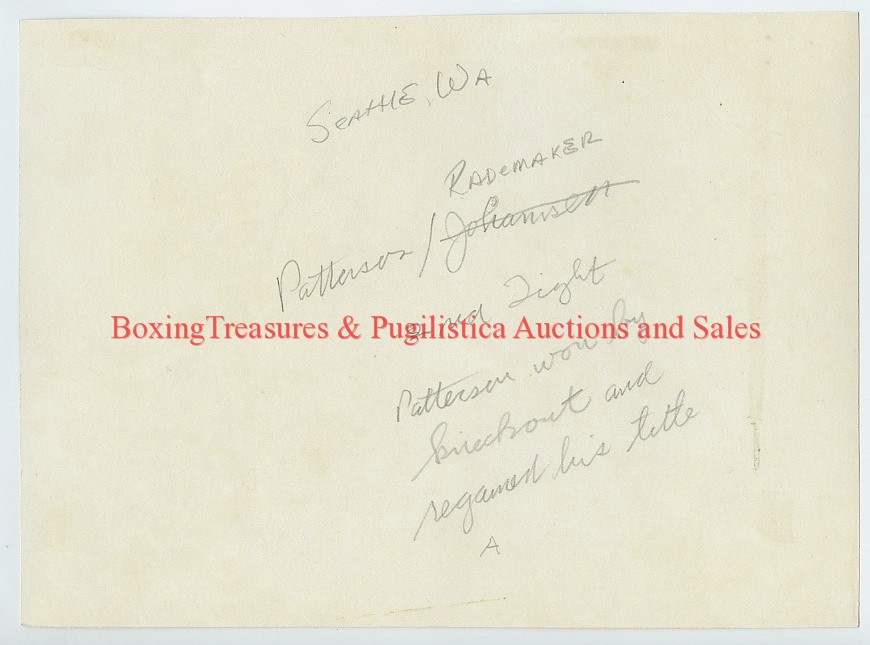 Seattle, WA
Rademaker
Patterson / Johannsen
2nd Fight
BoxingTreasures & Pugilistica Auctions and Sales
Patterson won by
knockout and
regained his title
A